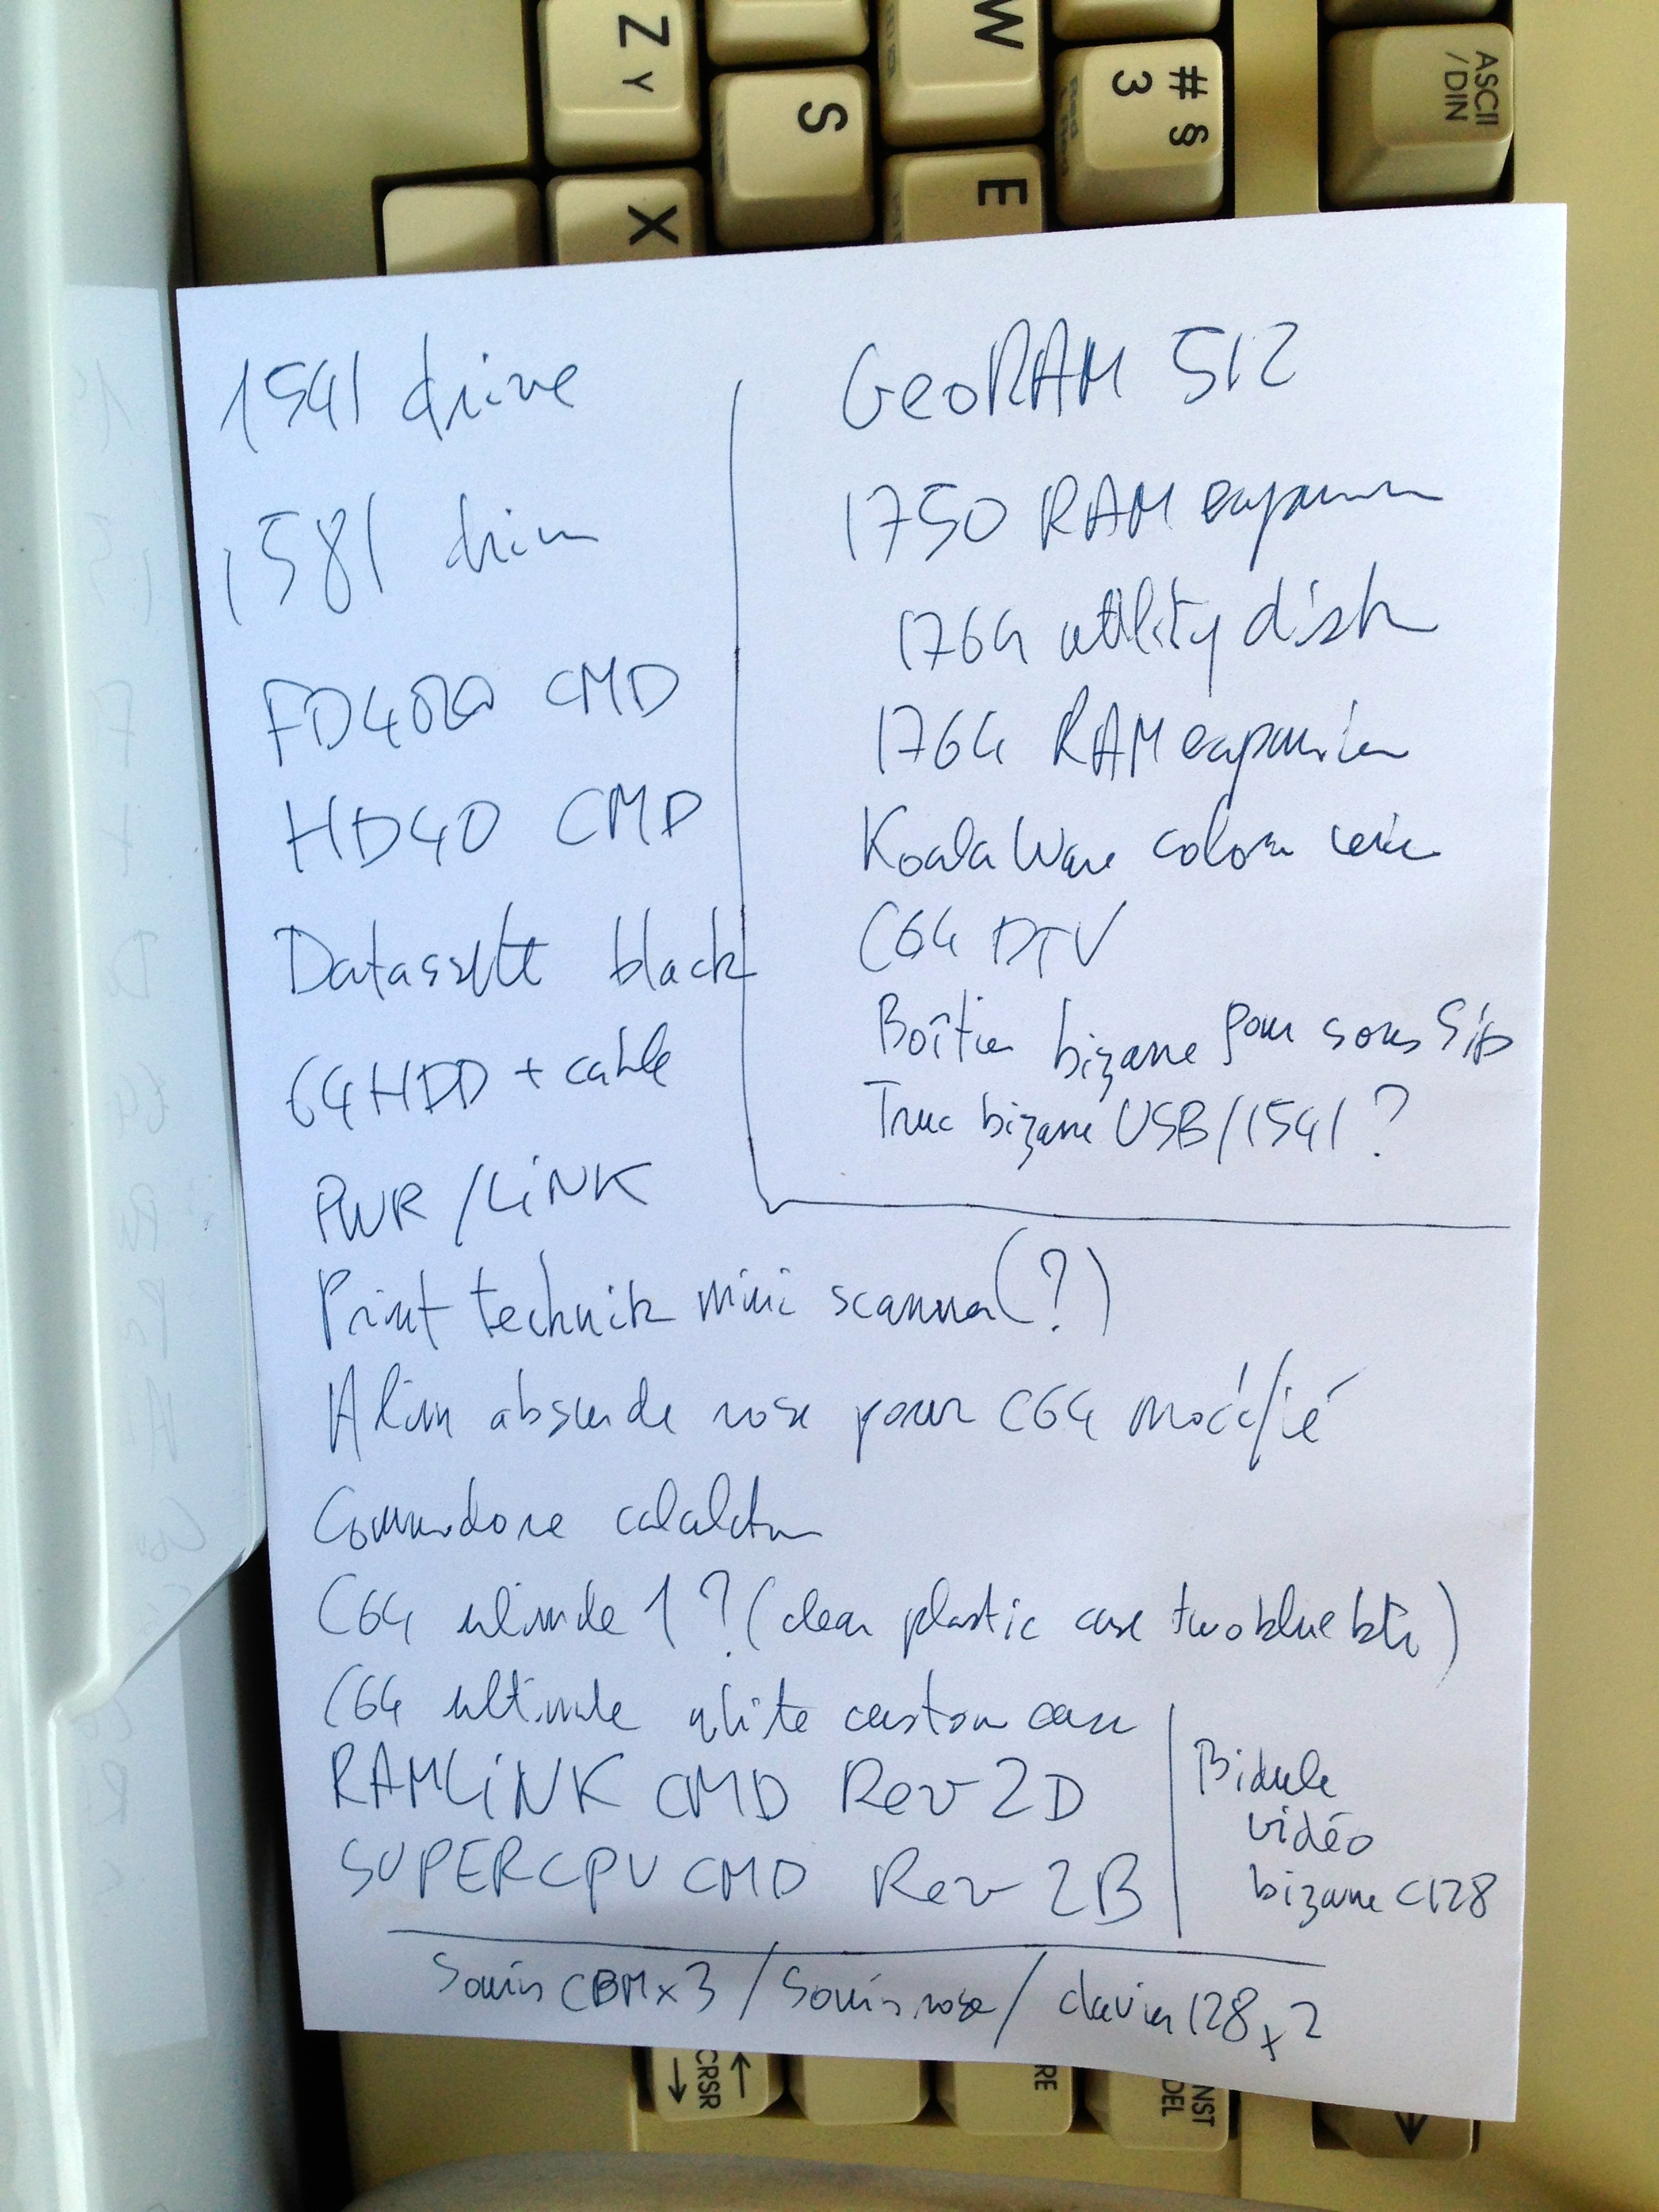 Z Y
S
W
# §
3
E
X
ASCII
/DIN
1541 drive
1581 drive
FD4000 CMD
HD40 CMD
Datassette black
64HDD + cable
PWR/LiNK
GeoRAM 512
1750 RAM expansion
1764 utility disk
1764 RAM expansion
KoalaWare
C64 DTV
Boîtier bizarre pour sons Sids
Truc bizarre USB/1541?
Print technik mini scanner(?)
Alim absurde rose pour C64 modifié
Commodore calculator
C64 ultimate 1? (clear plastic case two blue bts)
C64 ultimate white custom case
RAMLiNK CMD Rev 2D
SUPERCPU CMD Rev 2B
Bidule
vidéo
bizarre C128
Souris CBM x 3 / Souris rose / clavier 128 x 2
CRSR
RE
INST
DEL